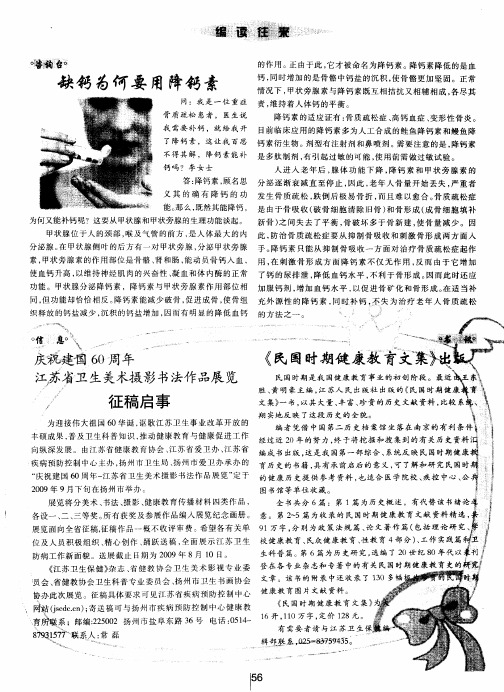 编读往来
咨询台
缺钙为何要用降钙素
问：我是一位重症
骨质疏松患者，医生说
我需要补钙，就给我开
了降钙素，这让我百思
不得其解，降钙素能补
钙吗？李女士
答：降钙素，顾名思
义其的确有降钙的功
能，那么，既然其能降钙，
为何又能补钙呢？这要从甲状腺和甲状旁腺的生理功能谈起。
甲状腺位于人的颈部，喉及气管的前方，是人体最大的内
分泌腺。在甲状腺侧叶的后方有一对甲状旁腺，分泌甲状旁腺
素，甲状旁腺素的作用部位是骨骼、肾和肠，能动员骨钙入血，
使血钙升高，以维持神经肌肉的兴奋性、凝血和体内酶的正常
功能。甲状腺分泌降钙素，降钙素与甲状旁腺素作用部位相
同，但功能却恰恰相反，降钙素能减少破骨，促进成骨，使骨组
织释放的钙盐减少，沉积的钙盐增加，因而有明显的降低血钙
的作用。正由于此，它才被命名为降钙素。降钙素降低的是血
钙，同时增加的是骨骼中钙盐的沉积，使骨骼更加坚固。正常
情况下，甲状旁腺素与降钙素既互相拮抗又相辅相成，各尽其
责，维持着人体钙的平衡。
降钙素的适应证有：骨质疏松症、高钙血症、变形性骨炎。
目前临床应用的降钙素多为人工合成的鲑鱼降钙素和鳗鱼降
钙素衍生物。剂型有注射剂和鼻喷剂。需要注意的是，降钙素
是多肽制剂，有引起过敏的可能，使用前需做过敏试验。
人进入老年后，腺体功能下降，降钙素和甲状旁腺素的
分泌逐渐衰减直至停止，因此，老年人骨量开始丢失，严重者
发生骨质疏松，跌倒后极易骨折，而且难以愈合。骨质疏松症
是由于骨吸收(破骨细胞清除旧骨)和骨形成(成骨细胞填补
新骨)之间失去了平衡，骨破坏多于骨新建，使骨量减少。因
此，防治骨质疏松症要从抑制骨吸收和刺激骨形成两方面入
手。降钙素只能从抑制骨吸收一方面对治疗骨质疏松症起作
用，在刺激骨形成方面降钙素不仅无作用，反而由于它增加
了钙的尿排泄，降低血钙水平，不利于骨形成，因而此时还应
加服钙剂，增加血钙水平，以促进骨矿化和骨形成。在适当补
充外源性的降钙素，同时补钙，不失为治疗老年人骨质疏松
的方法之一。
信 息
庆祝建国60周年
江苏省卫生美术摄影书法作品展览
征稿启事
为迎接伟大祖国60华诞，讴歌江苏卫生事业改革开放的
丰硕成果，普及卫生科普知识，推动健康教育与健康促进工作
向纵深发展。由江苏省健康教育协会、江苏省爱卫办、江苏省
疾病预防控制中心主办，扬州市卫生局、扬州市爱卫办承办的
“庆祝建国60周年-江苏省卫生美术摄影书法作品展览”定于
2009年9月下旬在扬州市举办。
展览将分美术、书法、摄影、健康教育传播材料四类作品，
各设一、二、三等奖。所有获奖及参展作品编入展览纪念画册。
展览面向全省征稿，征稿作品一概不收评审费。希望各有关单
位及人员积极组织、精心创作、踊跃送稿，全面展示江苏卫生
防病工作新面貌。送展截止日期为2009年8月10日。
《江苏卫生保健》杂志、省健教协会卫生美术影视专业委
员会、省健教协会卫生科普专业委员会、扬州市卫生书画协会
协办此次展览。征稿具体要求可见江苏省疾病预防控制中心
网站(jscdc.cn)；寄送稿可与扬州市疾病预防控制中心健康教
育所联系：邮编：225002 扬州市盐阜东路36号 电话：0514-
87931577 联系人：常磊
《民国时期健康教育文集》出版
民国时期是我国健康教育事业的初创阶段。最近由王东
胜、黄明豪主编，江苏人民出版社出版的《民国时期健康教育
文集》一书，以其大量、丰富、珍贵的历史文献资料，比较系统、
翔实地反映了这段历史的全貌。
编者凭借中国第二历史档案馆坐落在南京的有利条件，
经过近20年的努力，终于将挖掘和搜集到的有关历史资料汇
编成书出版，这是我国第一部综合、系统反映民国时期健康教
育历史的书籍，具有承前启后的意义，可了解和研究民国时期
的健康历史提供参考资料，也适合医学院校、疾控中心、公共
图书馆等单位收藏。
全书共分6篇：第1篇为历史概述，有代替该书绪论意
义。第2-5篇为收录的民国时期健康教育文献资料精选，共
91万字，分别为政策法规篇、论文著作篇(包括理论研究、学
校健康教育、民众健康教育、性教育4部分)、工作实践篇和卫
生科普篇。第6篇为历史研究，选编了20世纪80年代以来刊
登在各专业杂志和专著中的有关民国时期健康教育史的研究
文章。该书的附录中还收录了130多幅极为珍贵的民国时期
健康教育图片文献资料。
《民国时期健康教育文集》为
16开，110万字，定价128元。
有需要者请与江苏卫生保健
科部联系，025-83759435。
56